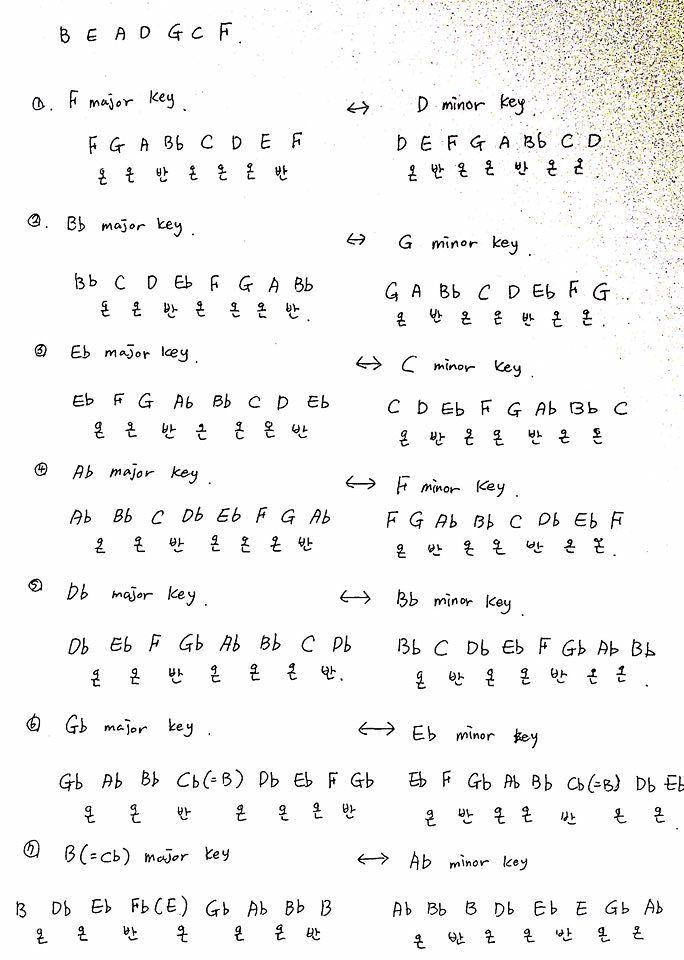 B E A D G C F.
①. F major key. ↔ D minor key.
F G A Bb C D E F D E F G A Bb C D
온 온 반 온 온 온 반 온 반 온 온 반 온 온.
②. Bb major key. ↔ G minor key.
Bb C D Eb F G A Bb G A Bb C D Eb F G
온 온 반 온 온 온 반. 온 반 온 온 반 온 온.
③ Eb major key. ↔ C minor key.
Eb F G Ab Bb C D Eb C D Eb F G Ab Bb C
온 온 반 온 온 온 반 온 반 온 온 반 온 온
④ Ab major key. ↔ F minor key.
Ab Bb C Db Eb F G Ab F G Ab Bb C Db Eb F
온 온 반 온 온 온 반 온 반 온 온 반 온 온.
⑤ Db major key. ↔ Bb minor key.
Db Eb F Gb Ab Bb C Db Bb C Db Eb F Gb Ab Bb
온 온 반 온 온 온 반. 온 반 온 온 반 온 온.
⑥ Gb major key. ↔ Eb minor key
Gb Ab Bb Cb(=B) Db Eb F Gb Eb F Gb Ab Bb Cb(=B) Db Eb
온 온 반 온 온 온 반 온 반 온 온 반 온 온.
⑦ B(=Cb) major key ↔ Ab minor key
B Db Eb Fb(E) Gb Ab Bb B Ab Bb B Db Eb E Gb Ab
온 온 반 온 온 온 반 온 반 온 온 반 온 온